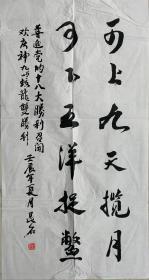 可上九天揽月
可下五洋捉鳖
喜迎党的十八大胜利召开
欢庆神九与蛟龙双胜利
壬辰年夏月